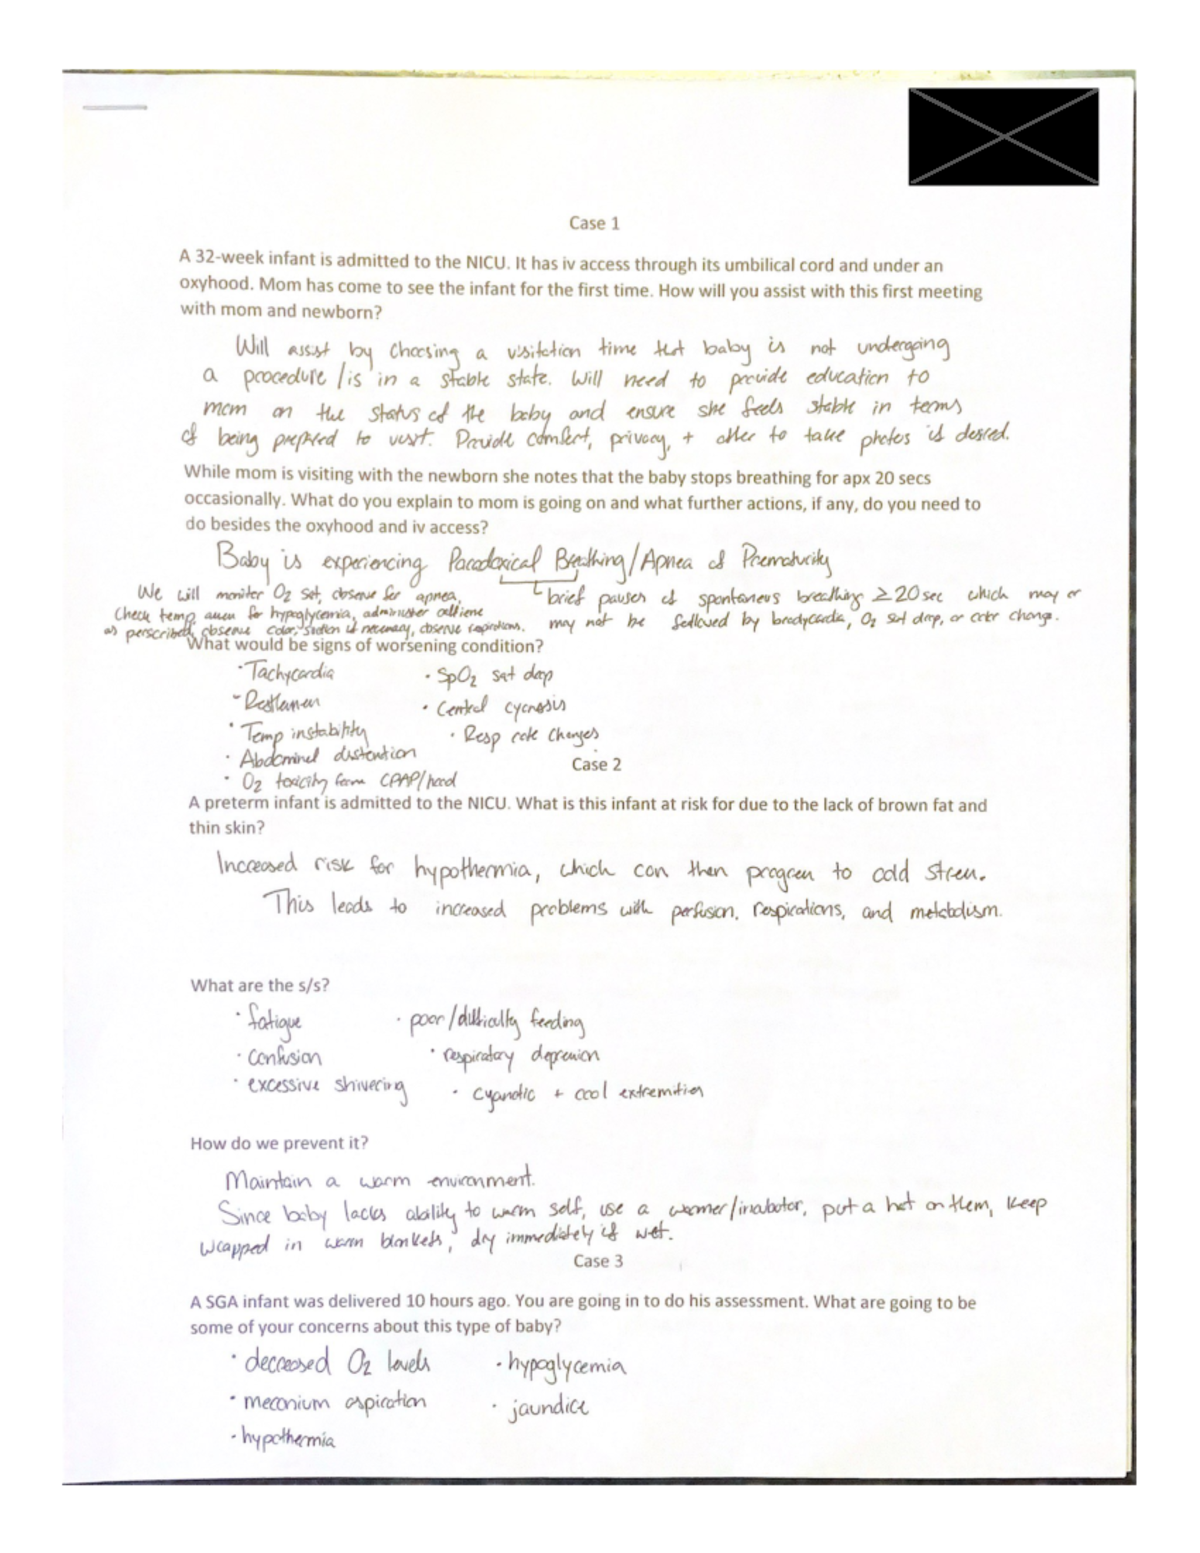 Case 1
A 32-week infant is admitted to the NICU. It has iv access through its umbilical cord and under an
oxyhood. Mom has come to see the infant for the first time. How will you assist with this first meeting
with mom and newborn?
Will assist by choosing a visitation time that baby is not undergoing
a procedure / is in a stable state. Will need to provide education to
mom on the status of the baby and ensure she feels stable in terms
of being prepared to visit. Provide comfort, privacy, + offer to take photos if desired.
While mom is visiting with the newborn she notes that the baby stops breathing for apx 20 secs
occasionally. What do you explain to mom is going on and what further actions, if any, do you need to
do besides the oxyhood and iv access?
Baby is experiencing Paradoxical Breathing/Apnea of Prematurity
brief pauses of spontaneous breathing ≥20 sec which may or
may not be followed by bradycardia, O2 sat drop, or color change.
We will monitor O2 sat, observe for apnea,
Check temp, assess for hypoglycemia, administer caffeine
as perscribed, observe color, suction if necessary, observe respirations.
What would be signs of worsening condition?
· Tachycardia
- Restlessness
· Temp instability
· Abdominal distention
· O2 toxicity from CPAP/hood
· SpO2 sat drop
· Central cyanosis
· Resp rate changes
Case 2
A preterm infant is admitted to the NICU. What is this infant at risk for due to the lack of brown fat and
thin skin?
Increased risk for hypothermia, which can then progress to cold stress.
This leads to increased problems with perfusion, respirations, and metabolism.
What are the s/s?
· fatigue
· confusion
· excessive shivering
· poor/difficulty feeding
· respiratory depression
· cyanotic + cool extremities
How do we prevent it?
Maintain a warm environment.
Since baby lacks ability to warm self, use a warmer/incubator, put a hat on them, keep
wrapped in warm blankets, dry immediately if wet.
Case 3
A SGA infant was delivered 10 hours ago. You are going in to do his assessment. What are going to be
some of your concerns about this type of baby?
· decreased O2 levels
· meconium aspiration
· hypothermia
· hypoglycemia
· jaundice